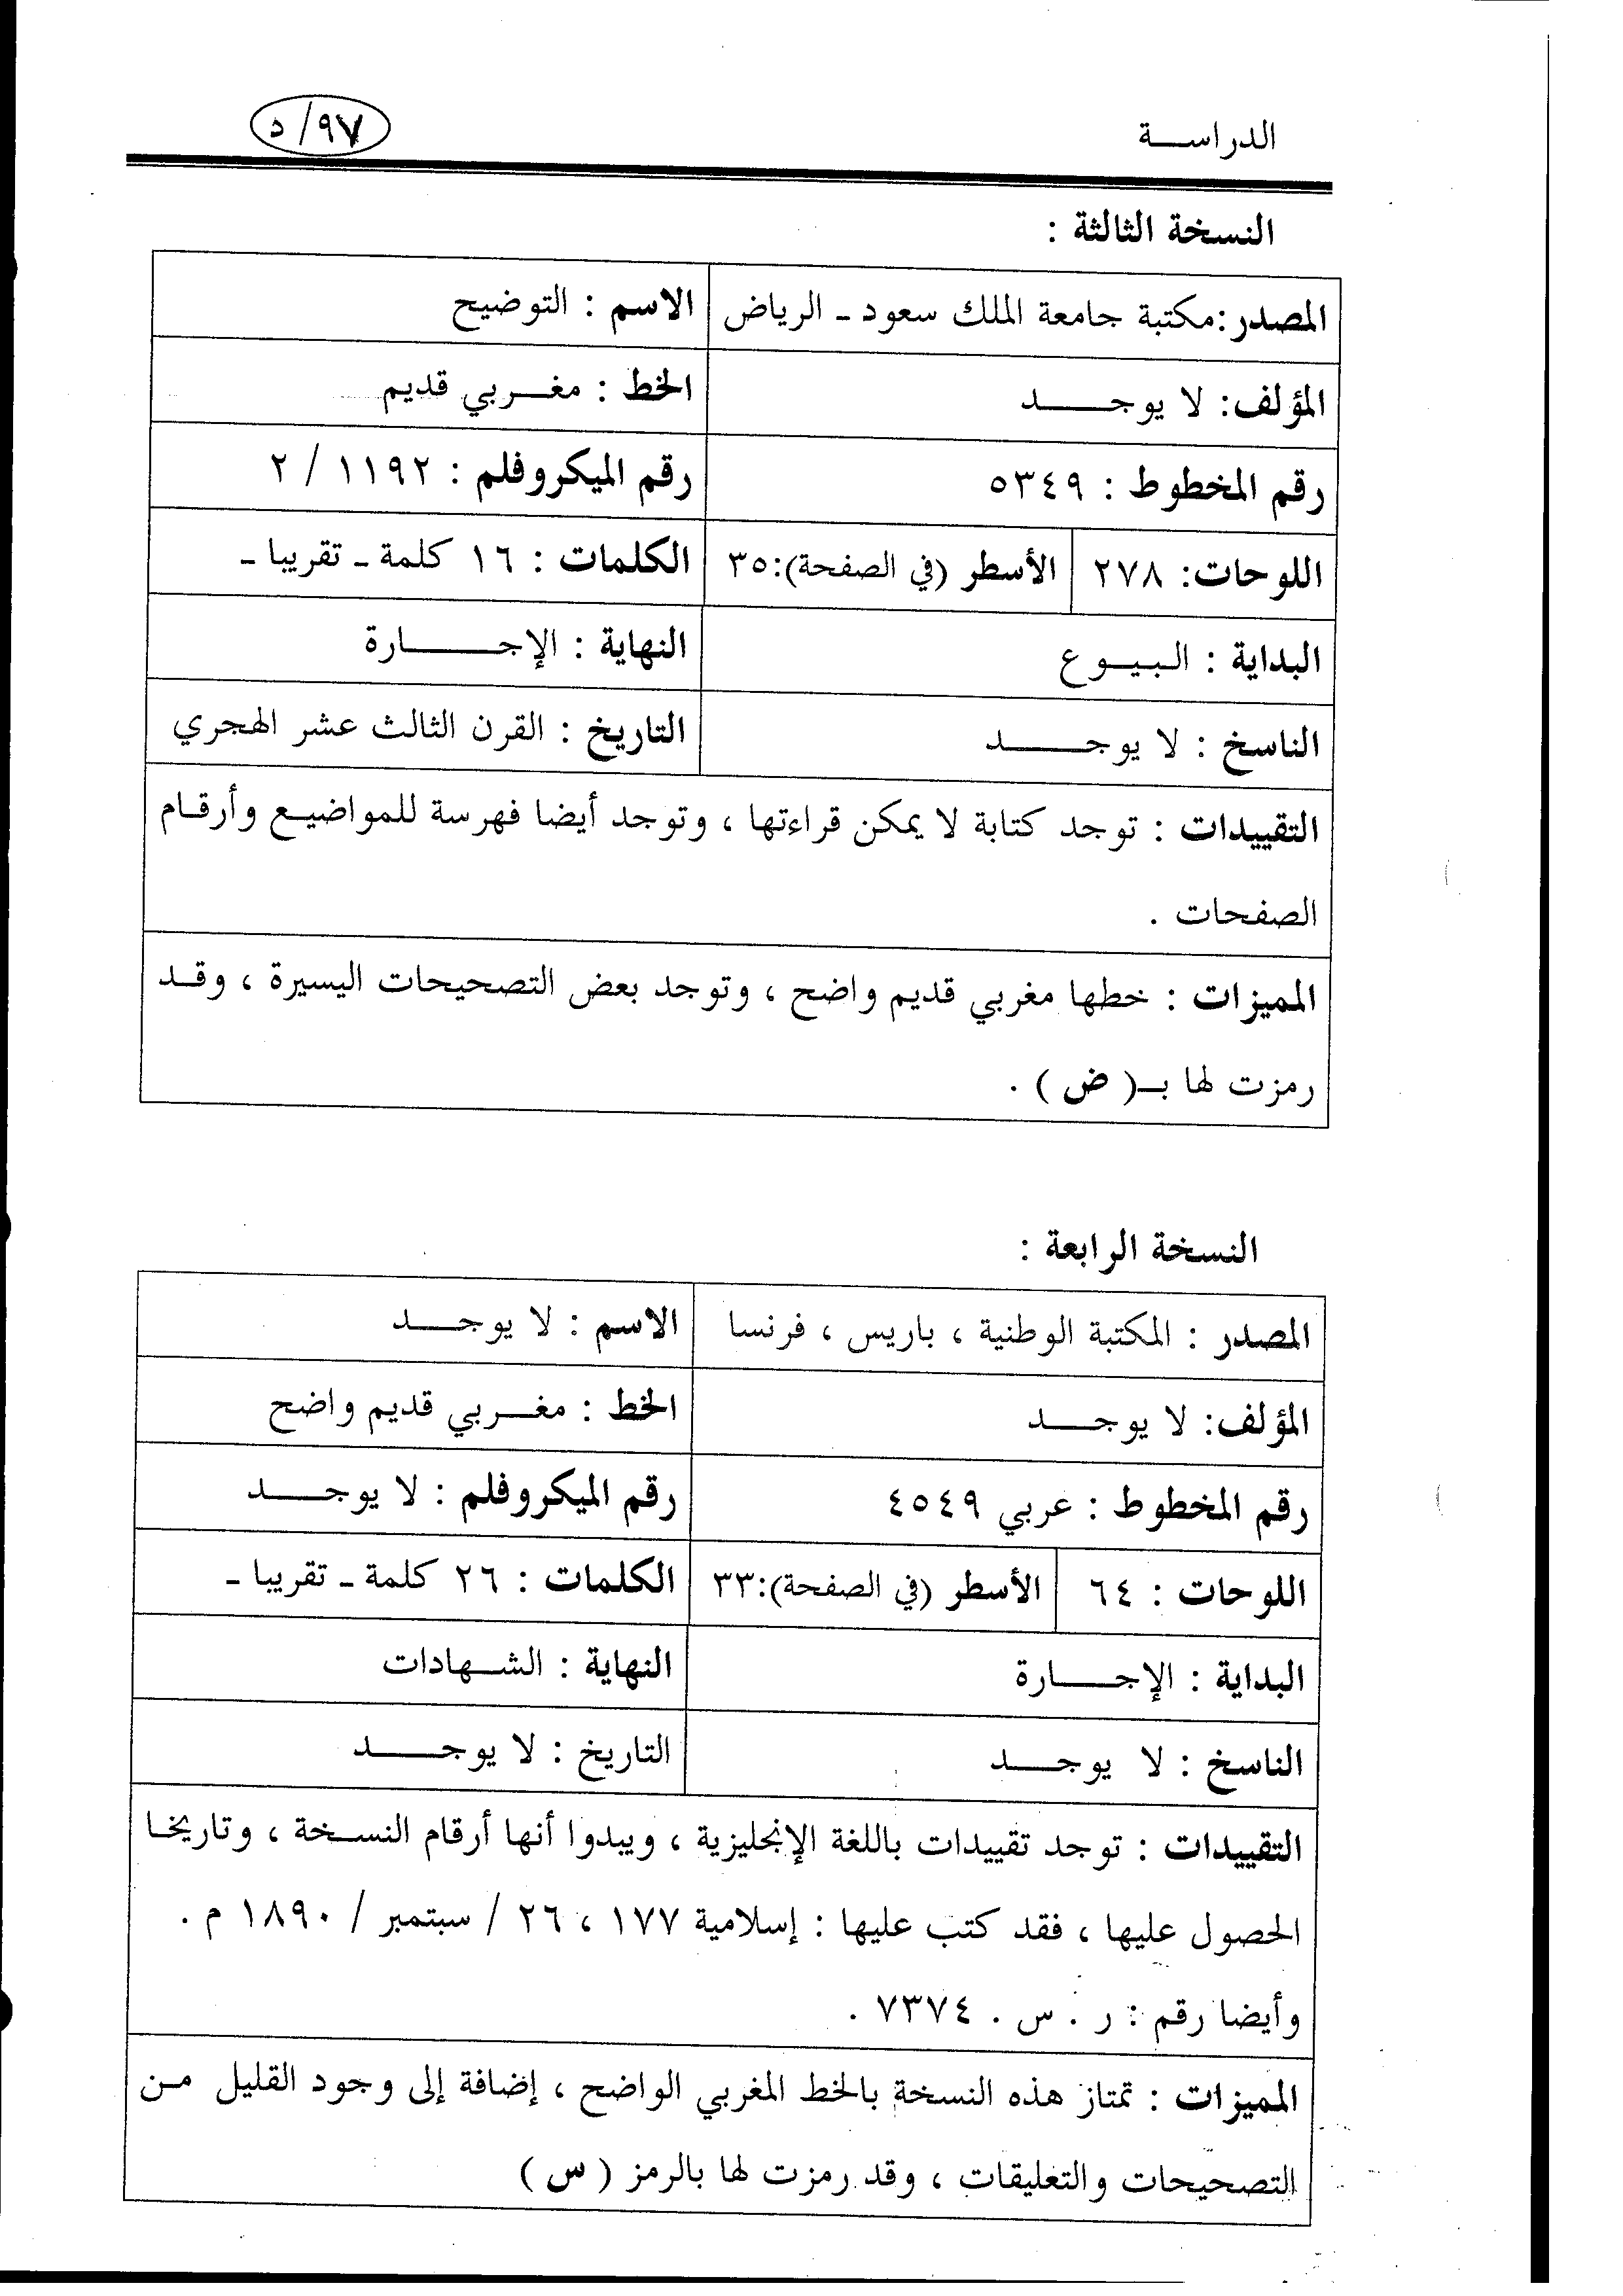 الدراســة
٩٧/ د
النسخة الثالثة :
المصدر:مكتبة جامعة الملك سعود ـ الرياض
الاسم : التوضيح
المؤلف: لا يوجـــــد
الخط : مغـــربي قديم
رقم المخطوط : ٥٣٤٩
رقم الميكروفلم : ١١٩٢ / ٢
اللوحات: ٢٧٨
الأسطر (في الصفحة):٣٥
الكلمات : ١٦ كلمة ـ تقريبا ـ
البداية : البيـوع
النهاية : الإجـــــارة
الناسخ : لا يوجـــــد
التاريخ : القرن الثالث عشر الهجري
التقييدات : توجد كتابة لا يمكن قراءتها ، وتوجد أيضا فهرسة للمواضيـع وأرقـام
الصفحات .
المميزات : خطها مغربي قديم واضح ، وتوجد بعض التصحيحات اليسيرة ، وقـد
رمزت لها بـ( ض ) .
النسخة الرابعة :
المصدر : المكتبة الوطنية ، باريس ، فرنسا
الاسم : لا يوجــــد
المؤلف: لا يوجــــد
الخط : مغـــربي قديم واضح
رقم المخطوط : عربي ٤٥٤٩
رقم الميكروفلم : لا يوجـــــد
اللوحات : ٦٤
الأسطر (في الصفحة):٣٣
الكلمات : ٢٦ كلمة ـ تقريبا ـ
البداية : الإجــــارة
النهاية : الشـــهادات
الناسخ : لا يوجــــد
التاريخ : لا يوجـــــد
التقييدات : توجد تقييدات باللغة الإنجليزية ، ويبدوا أنها أرقام النســخة ، وتاريخـا
الحصول عليها ، فقد كتب عليها : إسلامية ١٧٧ ، ٢٦ / سبتمبر / ١٨٩٠ م .
وأيضا رقم : ر . س . ٧٣٧٤ .
المميزات : تمتاز هذه النسخة بالخط المغربي الواضح ، إضافة إلى وجود القليل مـن
التصحيحات والتعليقات ، وقد رمزت لها بالرمز ( س )